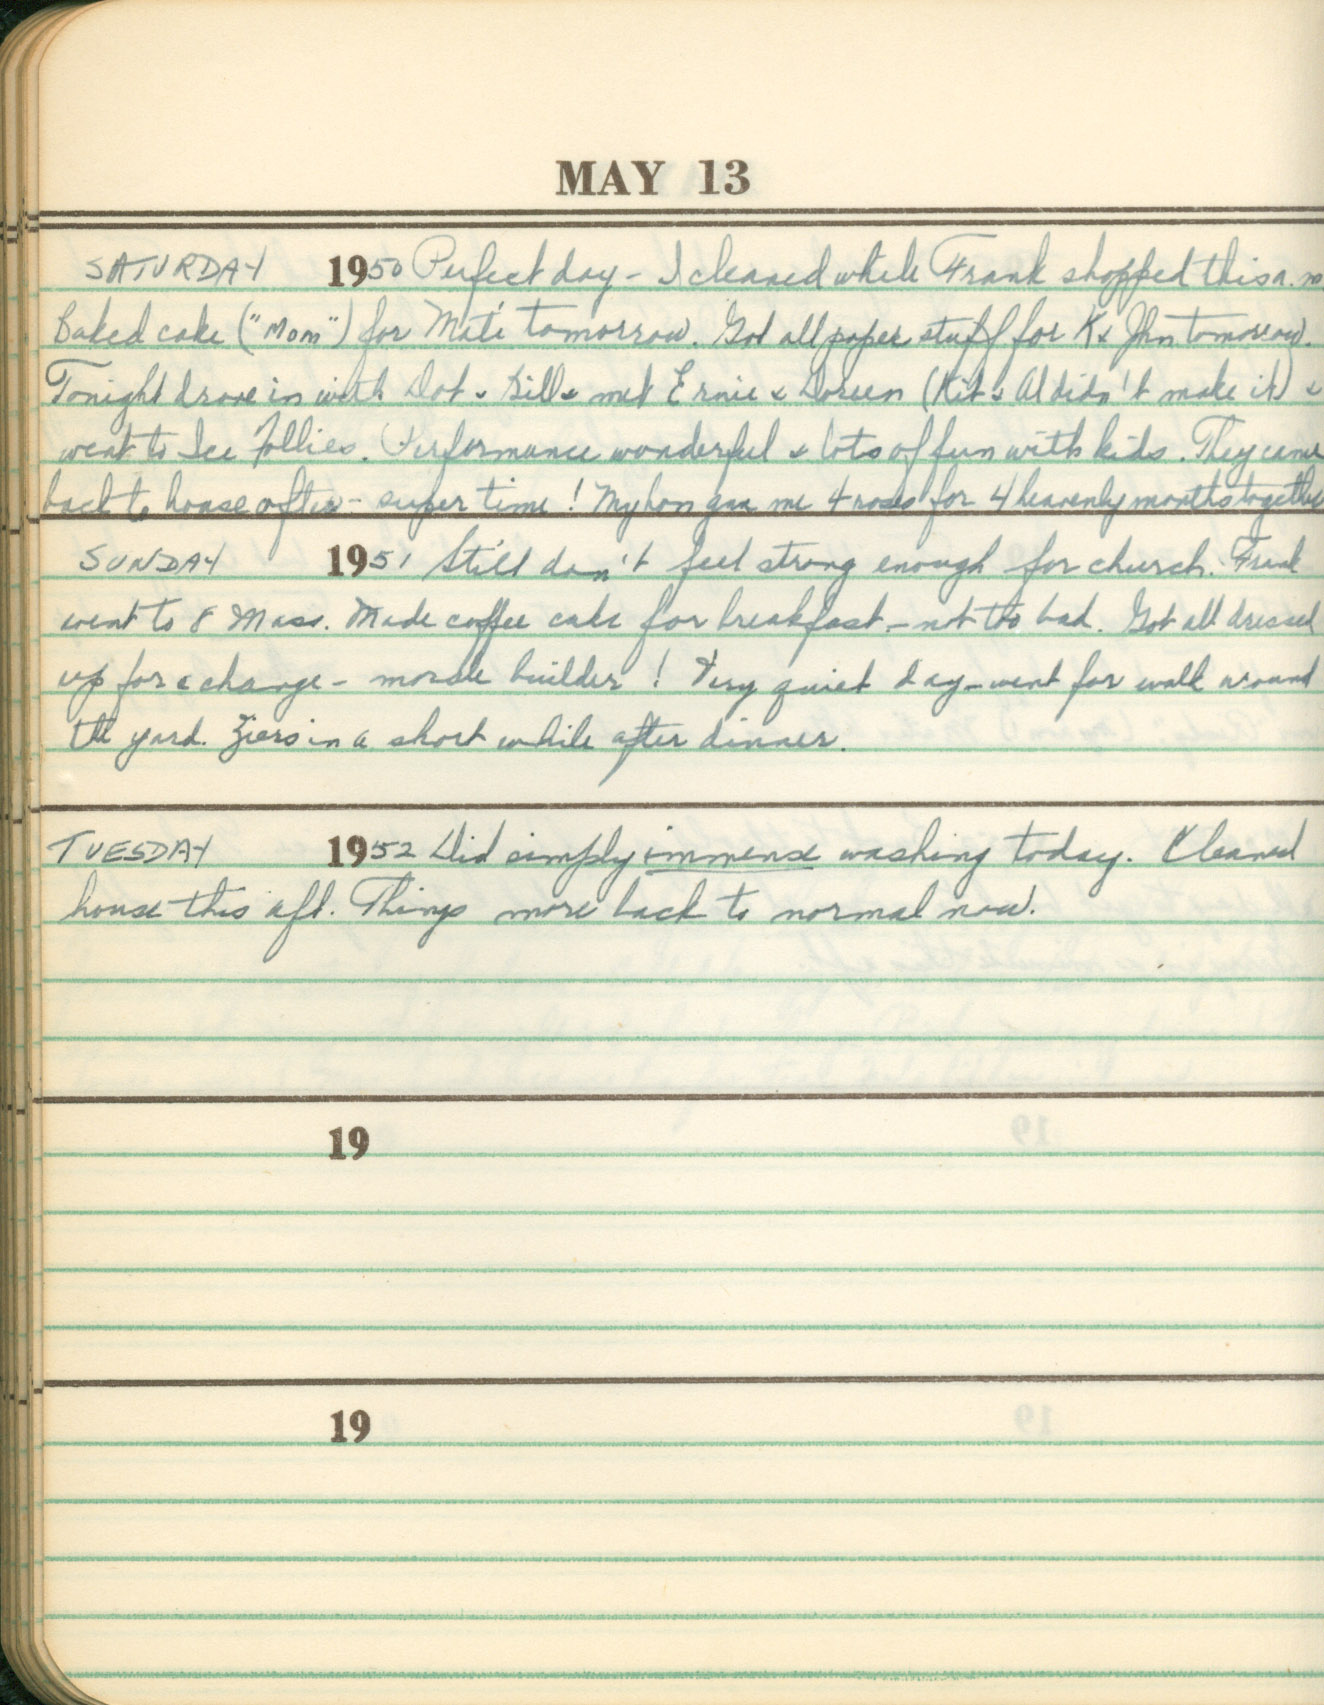 MAY 13
SATURDAY 1950 Perfect day - I cleaned while Frank shopped this a.m
Baked cake ("Mom") for Mate tomorrow. Got all paper stuff for K & Jhn tomorrow.
Tonight drove in with Dot & Bill & met Ernie & Doreen (Kit & Al didn't make it) &
went to Ice Follies. Performance wonderful & lots of fun with kids. They came
back to house after - super time! My hon gave me 4 roses for 4 heavenly months together
SUNDAY 1951 Still don't feel strong enough for church. Frank
went to 8 Mass. Made coffee cake for breakfast - not too bad. Got all dressed
up for a change - morale builder! Very quiet day - went for walk around
the yard. Ziers in a short while after dinner.
TUESDAY 1952 Did simply immense washing today. Cleaned
house this aft. Things more back to normal now.
19
19